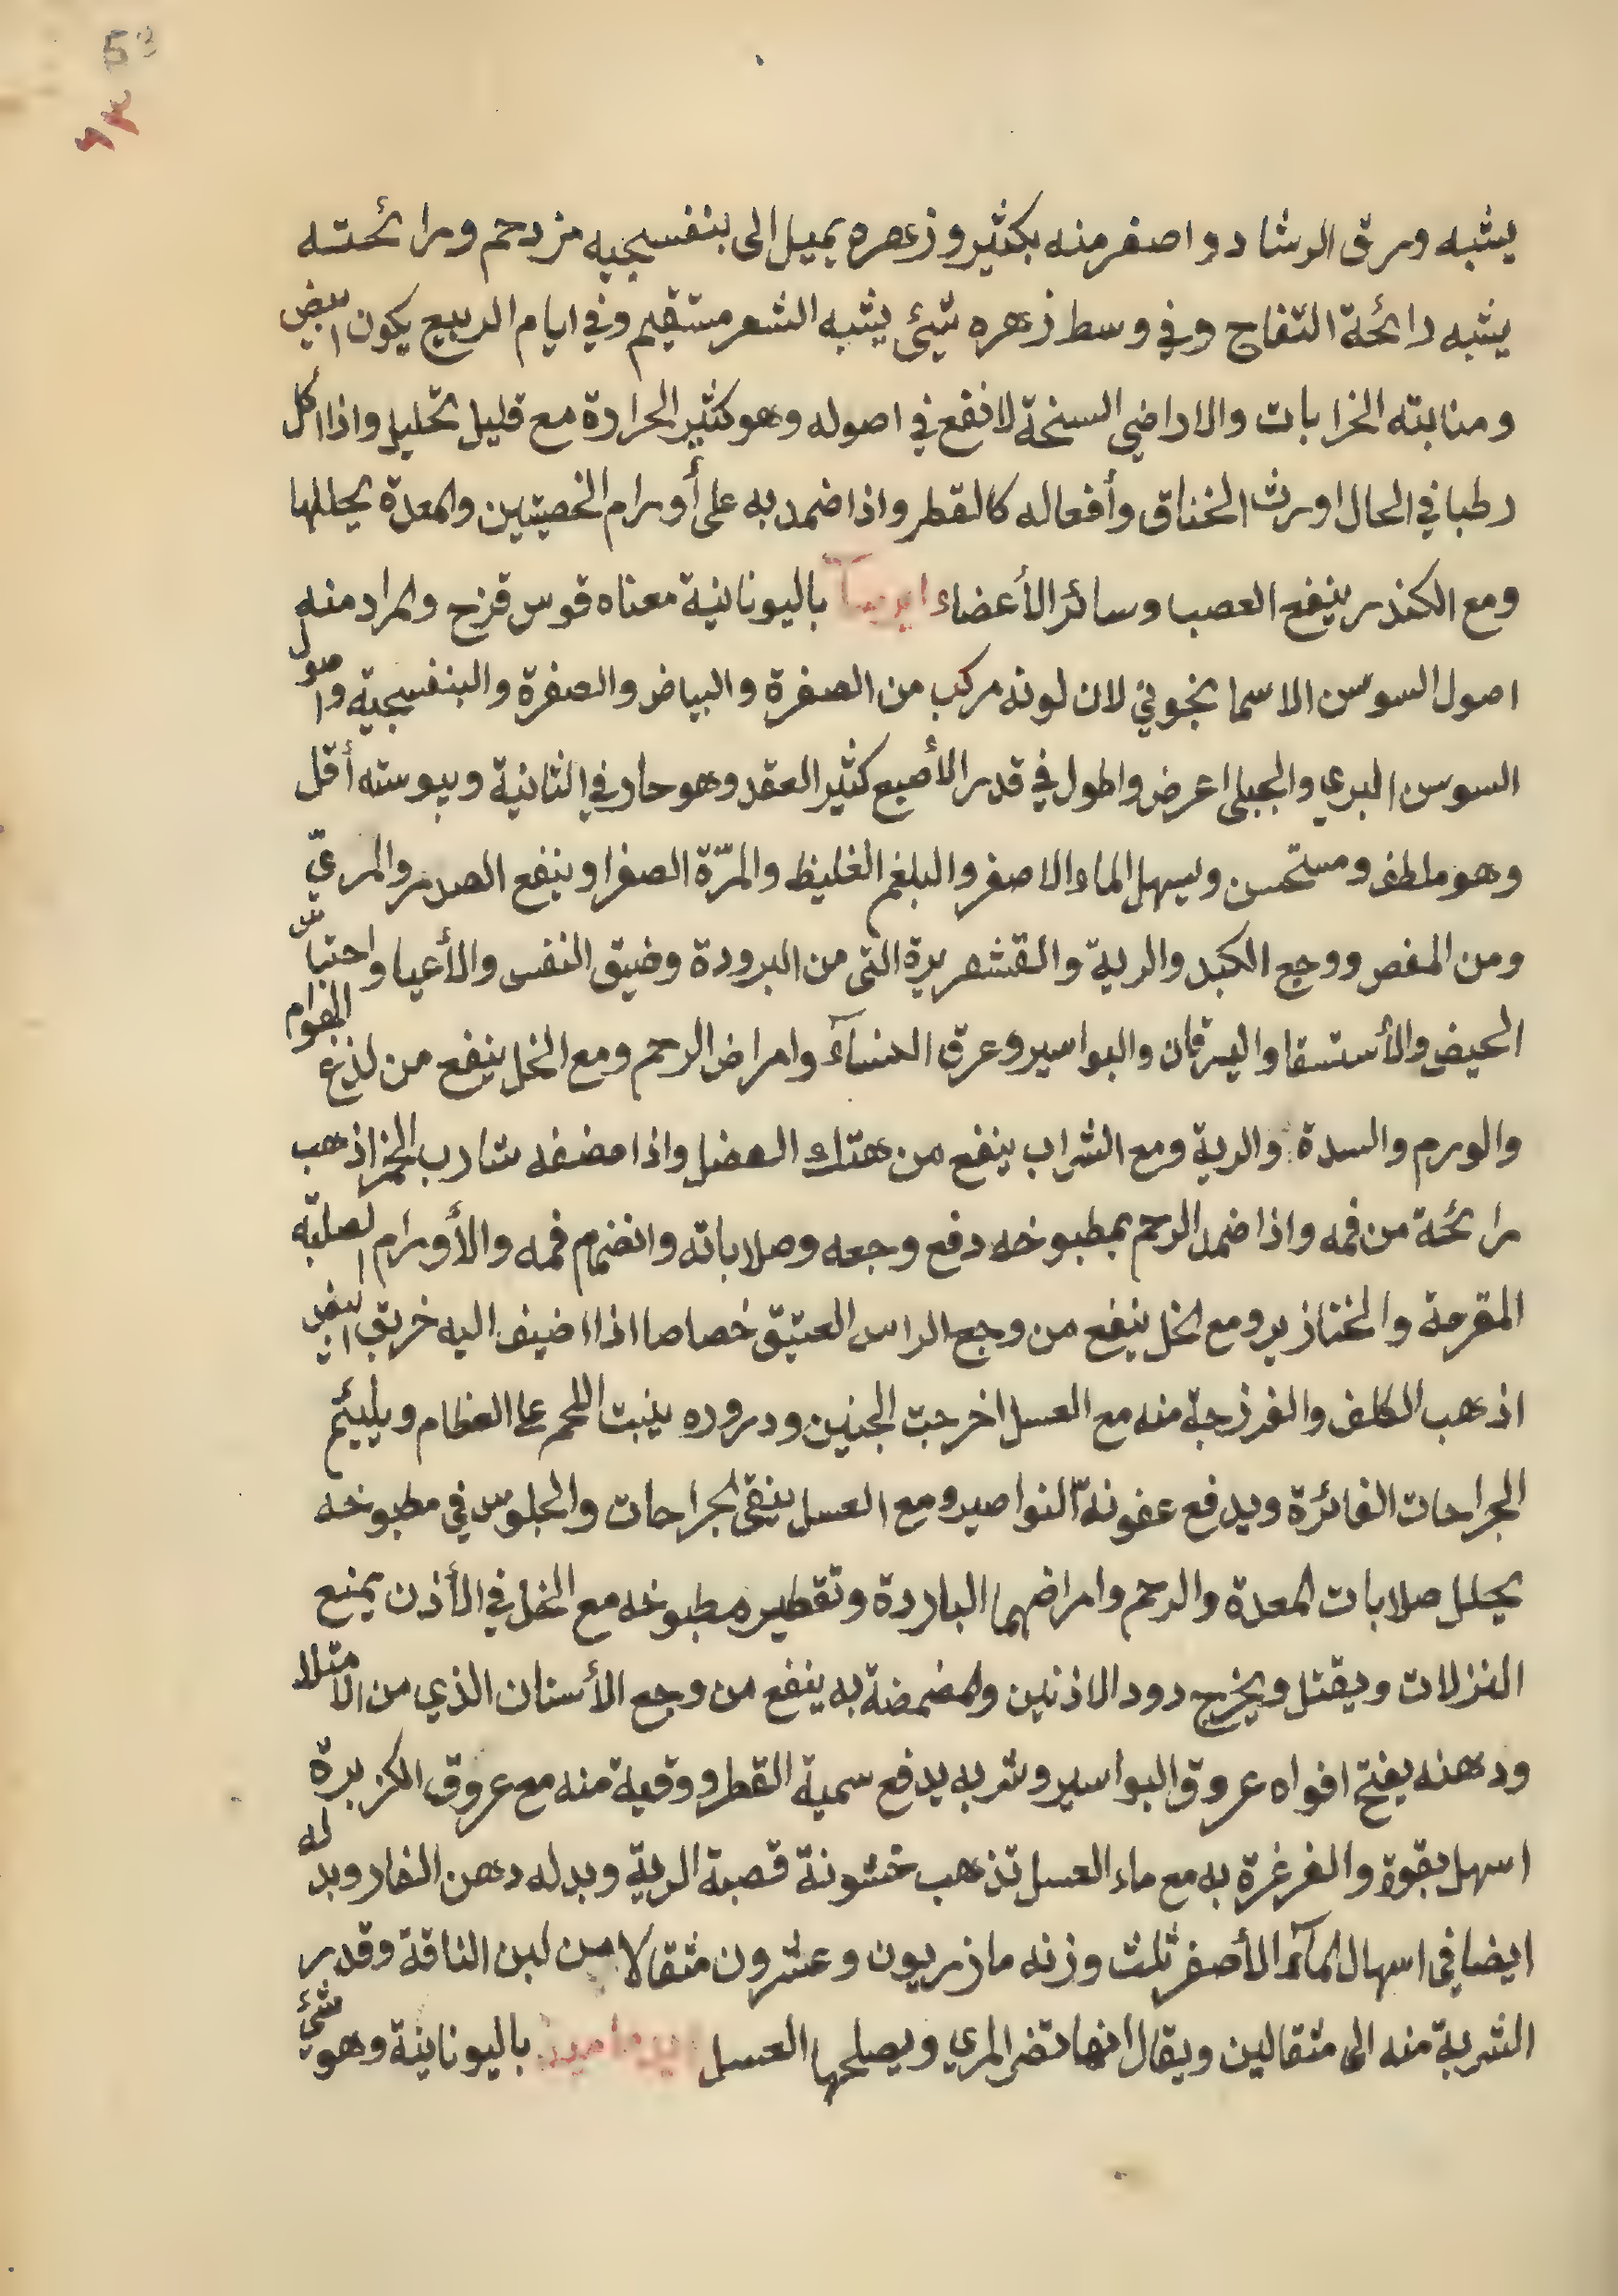 53
يشبه ورق الرشاد واصغر منه بكثير وزهره يميل الى بنفسجيه مزدحم ورائحته
يشبه رائحة التفاح وفي وسط زهره شئ يشبه الشعر مستقيم وفي ايام الربيع يكون ابيض
ومنابته الخرابات والاراضي السنخة لا نفع في اصوله وهو كثير الحرارة مع قليل تحليل واذا اكل
رطبا في الحال اورث الخناق وأفعاله كالفطر واذا ضمد به على أورام الخصيتين والمعدة يحللها
ومع الكندر ينفع العصب وسائر الأعضاء ايرسآ باليونانية معناه قوس قزح والمراد منه
اصول السوسن الاسمانجوني لان لونه مركب من الصفرة والبياض والصفرة والبنفسجية واصول
السوسن البري والجبلى اعرض واطول في قدر الأصبع كثير العقد وهو حار في الثانية ويبوسته أقل
وهو ملطف ومستحسن ويسهل الماء الاصفر والبلغم الغليظ والمرّة الصفرا وينفع الصدر والمريّ
ومن المغص ووجع الكبد والرية والقشعريرة التى من البرودة وضيق النفس والأعيا واحتباس
الحيض والأستسقا واليرقان والبواسير وعرق النسآء وامراض الرحم ومع الخل ينفع من لذع الهوام
والورم والسدة والرية ومع الشراب ينفع من هتك العضل واذا مضغه شارب الخمر اذهب
رائحة من فمه واذا ضمد الرحم بمطبوخه دفع وجعه وصلاباته وانضمام فمه والأورام الصلبة
المقرحة والخنازير ومع الخل ينفع من وجع الراس العتيق خصاصا اذا اضيف اليه خربق ابيض
اذهب الكلف والفرزجة منه مع العسل اخرجت الجنين ودروره ينبت اللحم على العظام ويليئم
الجراحات الغائرة ويدفع عفونة النواصير ومع العسل ينقى الجراحات والجلوس في مطبوخه
يحلل صلابات المعدة والرحم وامراضهما الباردة وتقطير مطبوخه مع الخل في الأذن يمنع
النزلات ويقتل ويخرج دود الاذنين والمضمضة به ينفع من وجع الأسنان الذي من الامتلا
ودهنه يفتح افواه عروق البواسير وشربه يدفع سمية الفطر ووقية منه مع عروق الكزبرة
اسهل بقوة والغرغرة به مع ماء العسل تذهب خشونة قصبة الرية وبدله دهن الغار وبدله
ايضا في اسهال المآء الأصفر ثلث وزنه مازريون وعشرون مثقالا من لبن الناقة وقدر
الشربة منه الى مثقالين ويقال انها تضر المري ويصلحها العسل باليونانية وهو شئ